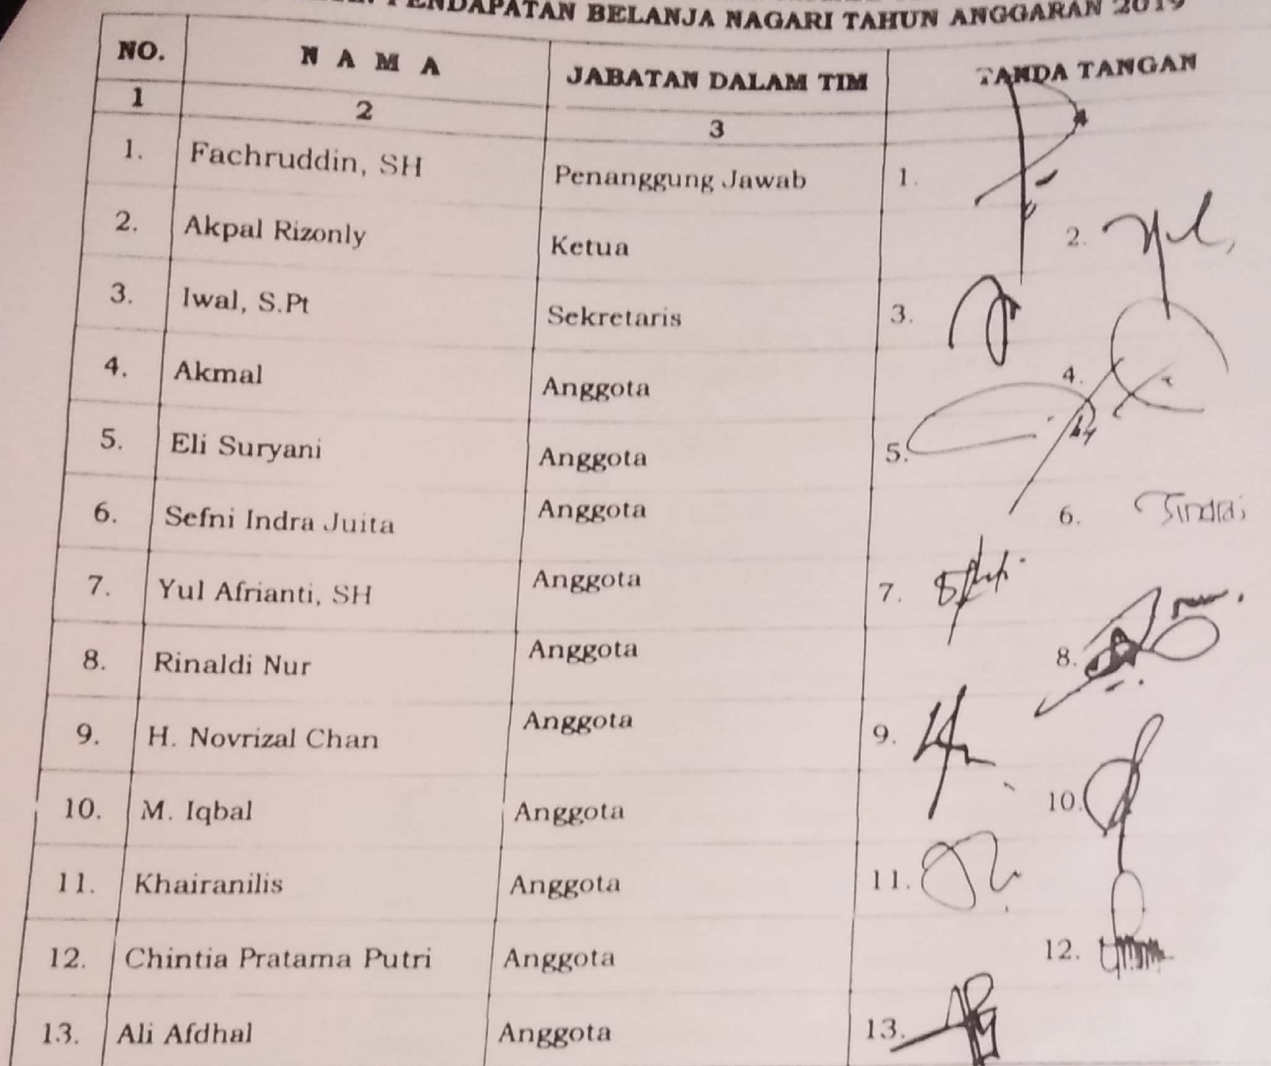 PENDAPATAN BELANJA NAGARI TAHUN ANGGARAN 2019
NO. N A M A JABATAN DALAM TIM TANDA TANGAN
1 2 3
1. Fachruddin, SH Penanggung Jawab 1.
2. Akpal Rizonly Ketua 2.
3. Iwal, S.Pt Sekretaris 3.
4. Akmal Anggota 4.
5. Eli Suryani Anggota 5.
6. Sefni Indra Juita Anggota 6.
7. Yul Afrianti, SH Anggota 7.
8. Rinaldi Nur Anggota 8.
9. H. Novrizal Chan Anggota 9.
10. M. Iqbal Anggota 10.
11. Khairanilis Anggota 11.
12. Chintia Pratama Putri Anggota 12.
13. Ali Afdhal Anggota 13.